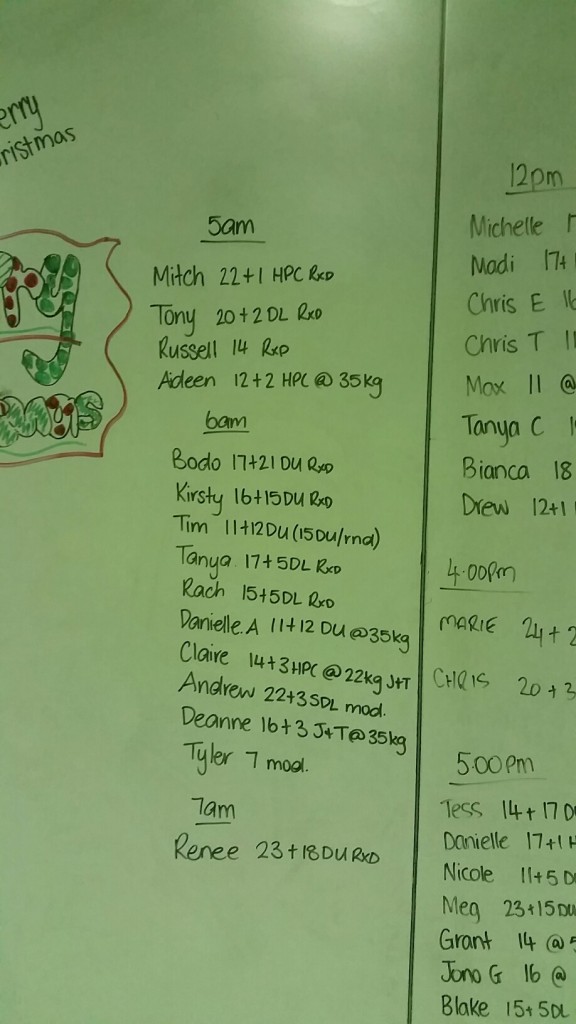 erry
ristmas
5am
Mitch 22+1 HPC RxD
Tony 20+2 DL RxD
Russell 14 RxD
Aideen 12+2 HPC @ 35kg
6am
Bodo 17+21 DU RxD
Kirsty 16+15DU RxD
Tim 11+12DU (15DU/rnd)
Tanya 17+5DL RxD
Rach 15+5DL RxD
Danielle.A 11+12 DU @35kg
Claire 14+3HPC @22kg J+T
Andrew 22+3SDL mod.
Deanne 16+3 J+T@35kg
Tyler 7 mod.
7am
Renee 23+18DU RXD
12pm
Michelle 17
Madi 17+1
Chris E 16
Chris T 11
Max 11 @
Tanya C 1
Bianca 18
Drew 12+1
4.00pm
MARIE 24+2
CHRIS 20+3
5:00pm
Tess 14+17D
Danielle 17+1 H
Nicole 11+5 D
Meg 23+15DU
Grant 14 @5
Jono G 16 @
Blake 15+5DL